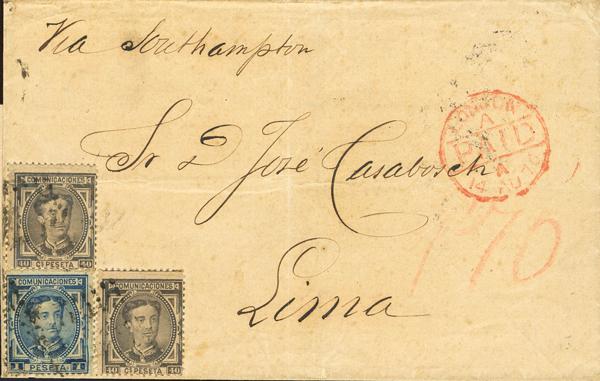 Via Southampton
Sr D José Casabosch
Lima
LONDON
A
PAID
A
14 AU 76
170
COMUNICACIONES
40 Cs PESETA 40
COMUNICACIONES
1 PESETA 1
COMUNICACIONES
40 Cs PESETA 40